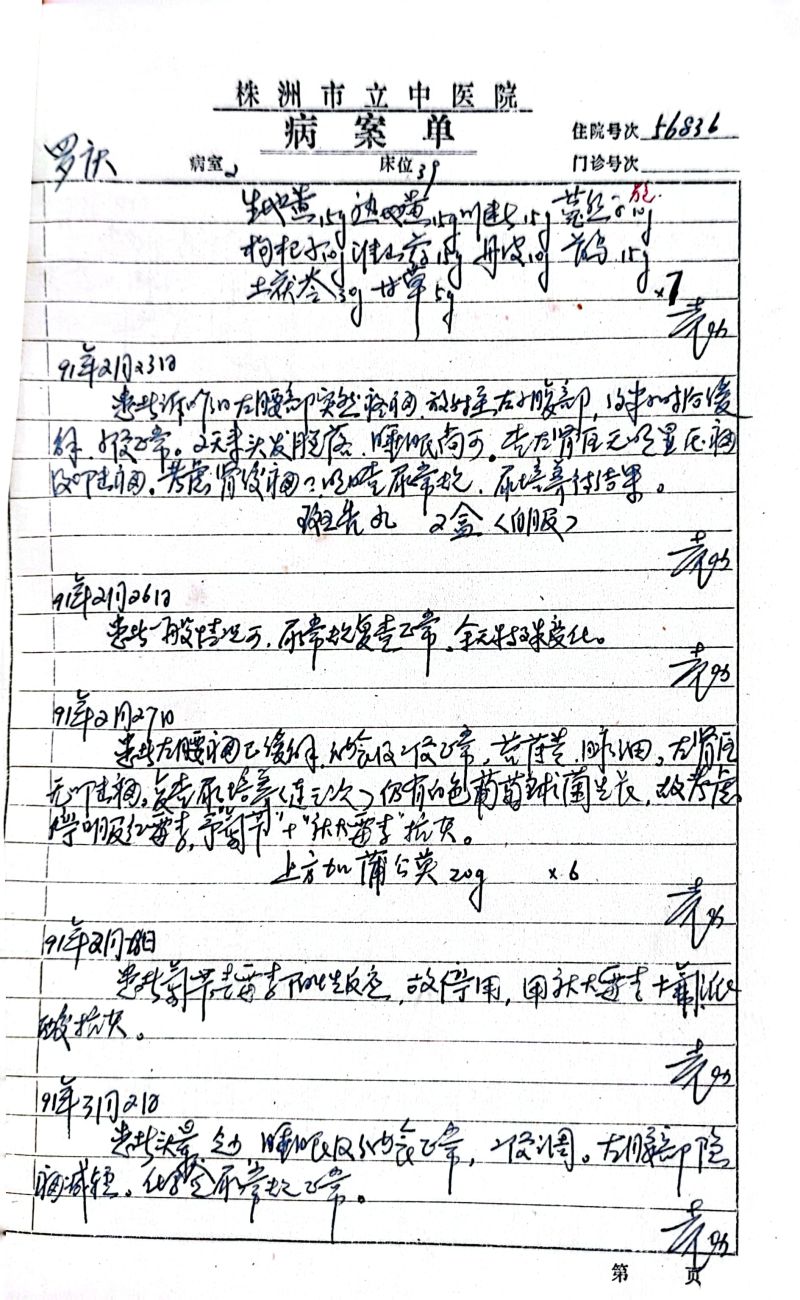 株洲市立中医院
病案单
住院号次 56836
罗庆 病室 2 床位 39 门诊号次
生地黄15g 熟地黄15g 川断15g 菟丝子10g 包
枸杞子10g 淮山药15g 丹皮10g 15g
土茯苓30g 甘草5g
×7
91年2月23日
患者诉昨日左腰部突然疼痛,放射至左小腹部,约半小时后缓
解,二便正常。2天来头发脱落,睡眠尚可。查左肾区无明显压痛
及叩击痛。考虑肾绞痛?明日查尿常规,尿培养待结果。
斑秃丸 2盒(自服)
91年2月26日
患者一般情况可,尿常规复查正常,余无特殊变化。
91年2月27日
患者左腰痛已缓解,纳食及二便正常,苔薄黄,脉细。左肾区
无叩击痛。复查尿培养(连三次)仍有白色葡萄球菌生长,故考虑
停服红霉素,予"氧苄"+"庆大霉素"抗炎。
上方加蒲公英20g ×6
91年2月28日
患者氧苄青霉素阳性反应,故停用,用庆大霉素+氟哌
酸抗炎。
91年3月2日
患者头晕,睡眠及纳食正常,二便调。左腰部隐
痛减轻。化验尿常规正常。
第 页